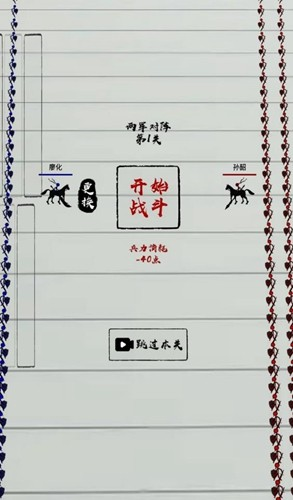 两军对阵
第1关
廖化
更换
开始
战斗
孙韶
兵力消耗
-40点
跳过本关